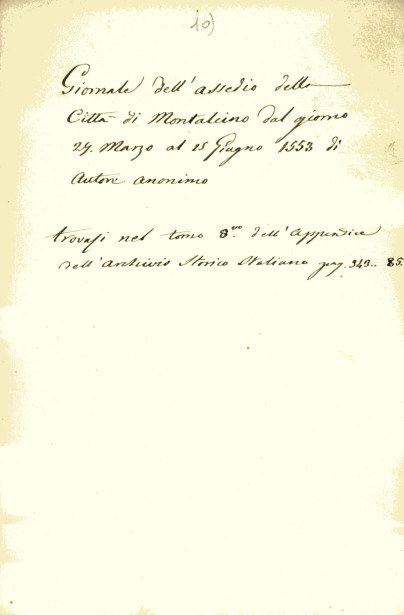 10)
Giornale dell'assedio della
Città di Montalcino dal giorno
24. Marzo al 15 Giugno 1553 di
Autore anonimo
trovasi nel tomo 8.vo dell'Appendice
dell'Archivio Storico Italiano pag. 343.. 85.